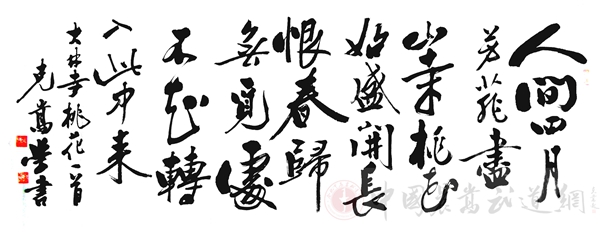 人間四月
芳菲盡
山寺桃花
始盛開長
恨春歸
無覓處
不知轉
入此中來
大林寺桃花一首
克嵩 書